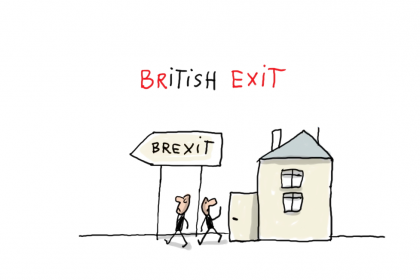 BRiTiSH EXiT
BREXiT